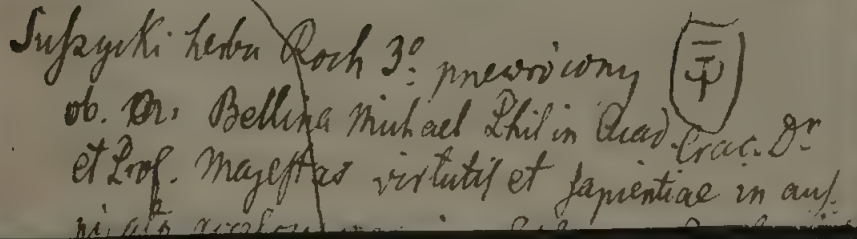 Suszycki herbu Roch 3º: pnewrócony
ob. Dr. Bellina Michael Phil in Acad. Crac. Dr
et Prof. Majestas virtutis et sapientiae in aus